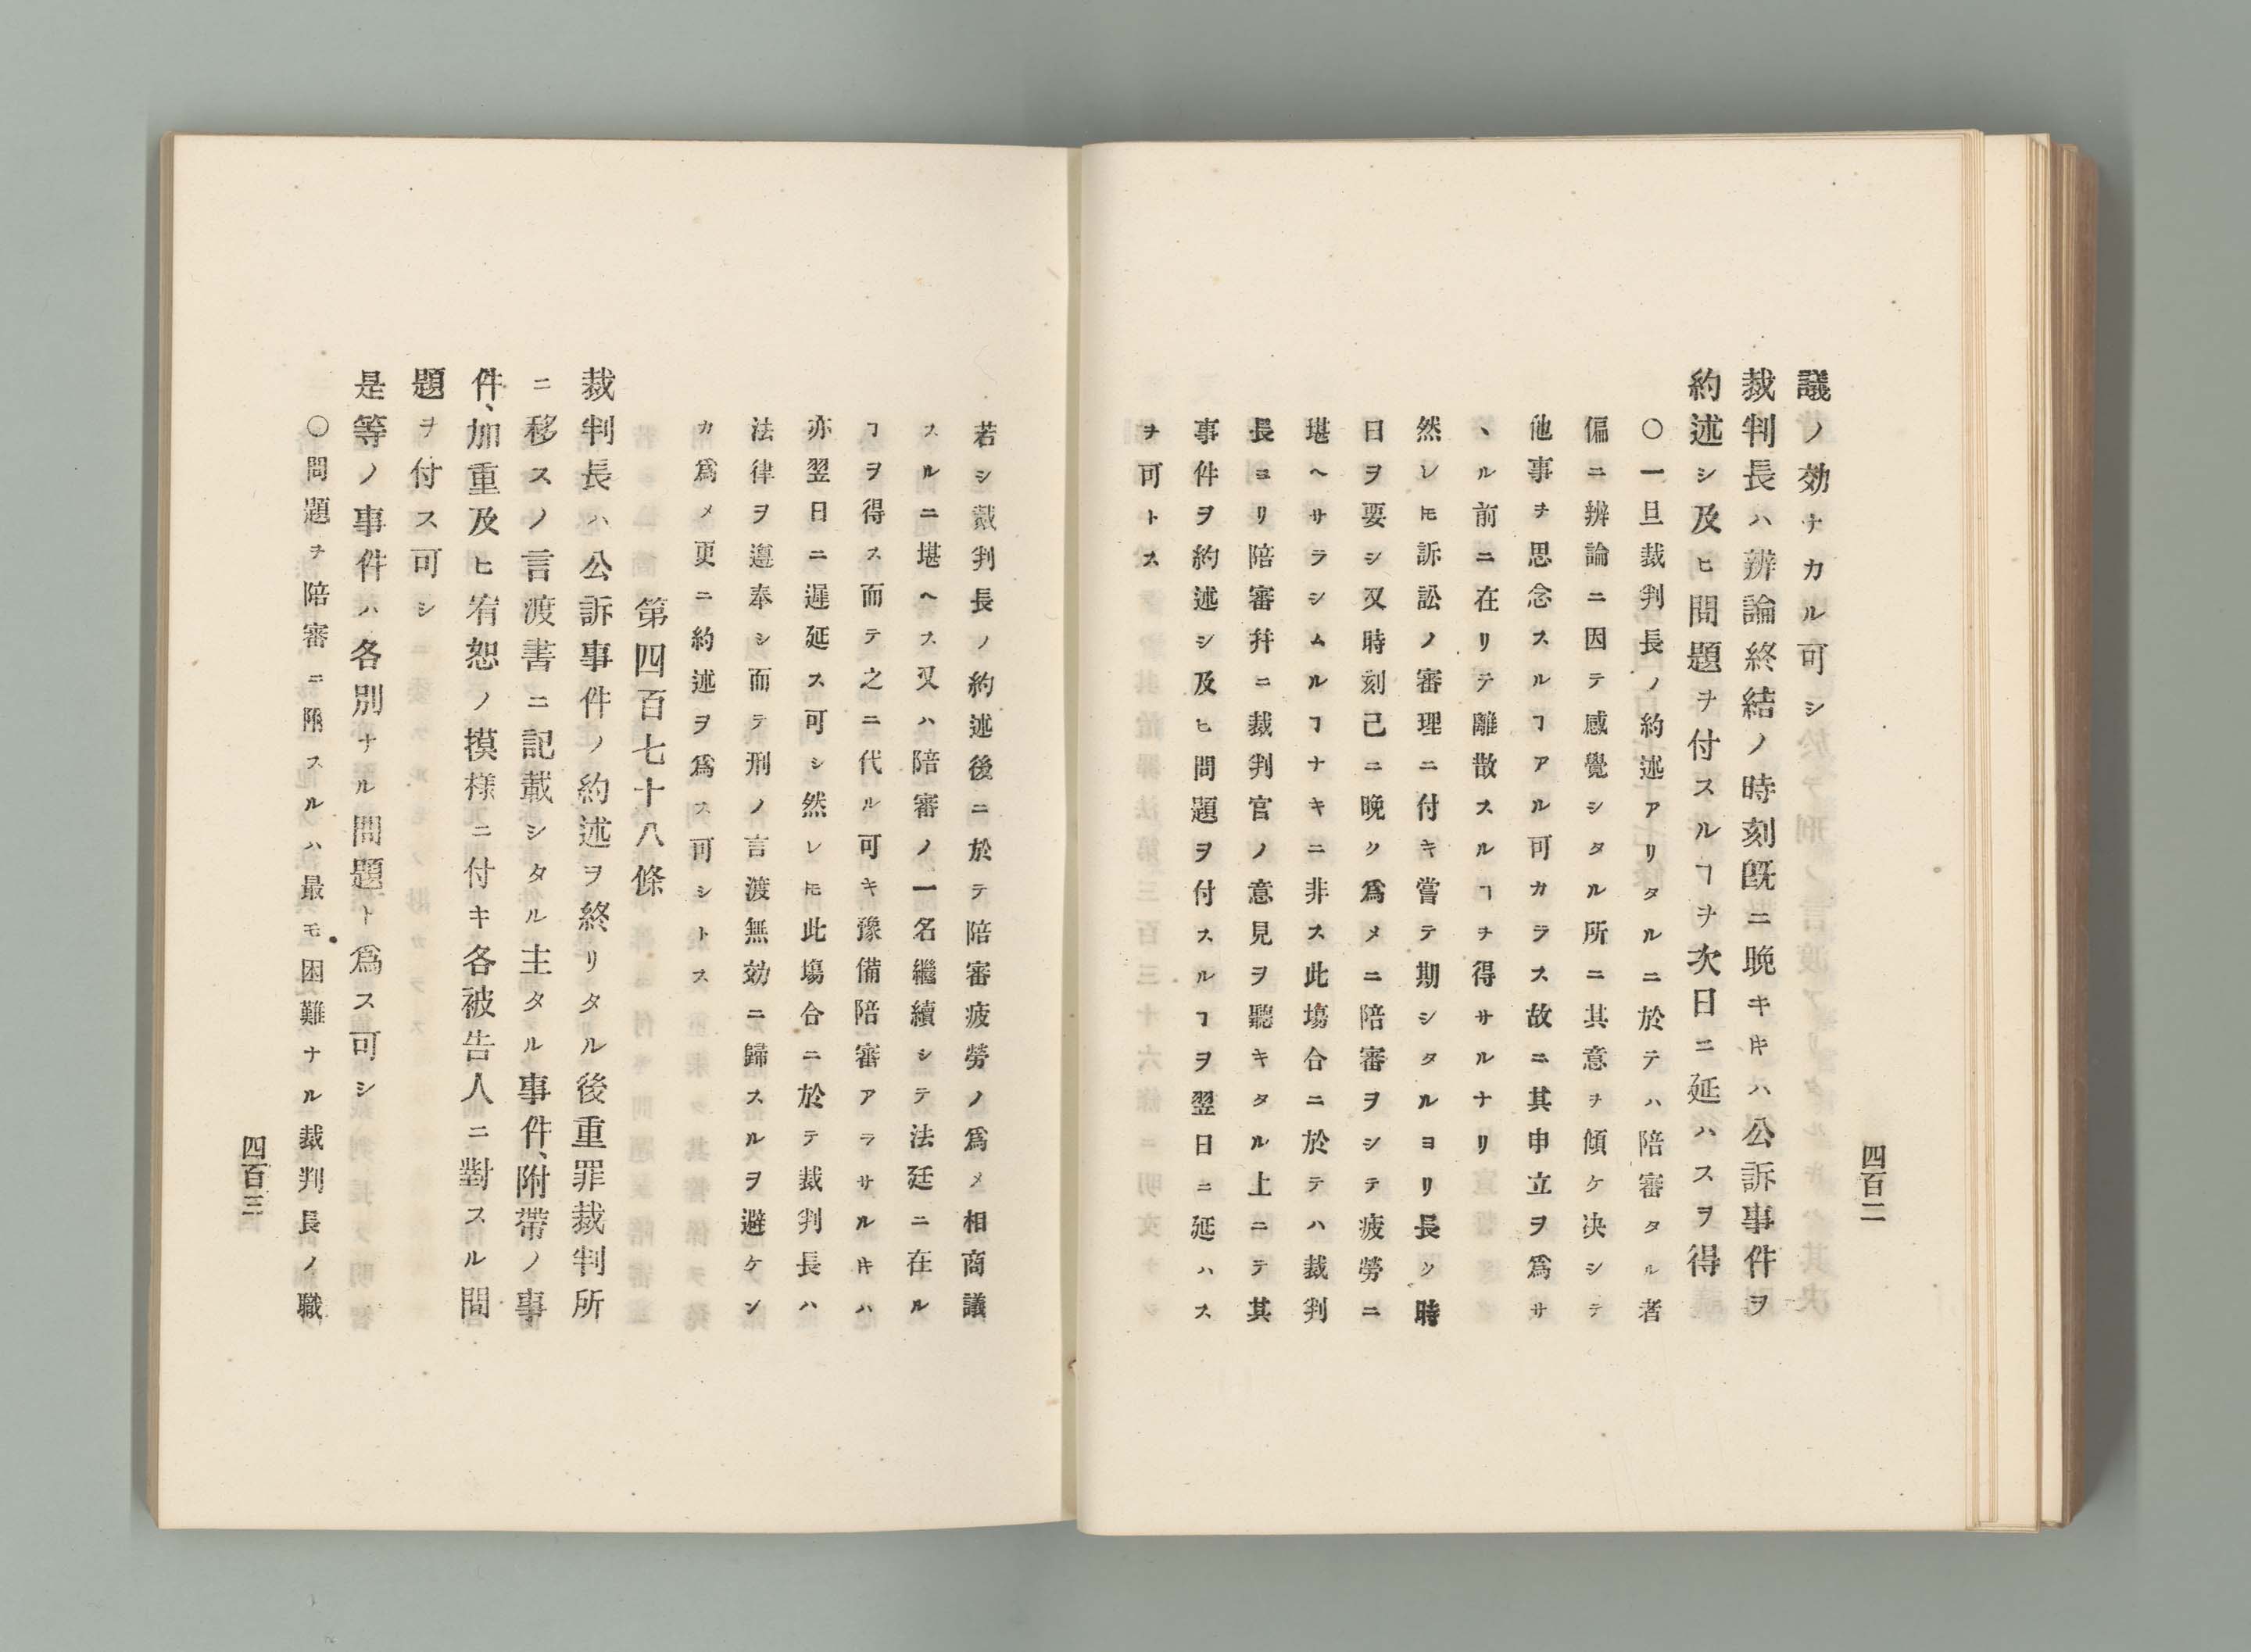 四百二
議ノ効ナカル可シ
裁判長ハ辨論終結ノ時刻既ニ晩キキハ公訴事件ヲ
約述シ及ヒ問題ヲ付スルヿヲ次日ニ延ハスヲ得
〇一旦裁判長ノ約述アリタルニ於テハ陪審タル者
偏ニ辨論ニ因テ感覺シタル所ニ其意ヲ傾ケ决シテ
他事ヲ思念スルヿアル可カラス故ニ其申立ヲ爲サ
ヽル前ニ在リテ離散スルヿヲ得サルナリ
然レ𪜈訴訟ノ審理ニ付キ嘗テ期シタルヨリ長ク時
日ヲ要シ又時刻已ニ晩ク爲メニ陪審ヲシテ疲勞ニ
堪ヘサラシムルヿナキニ非ス此塲合ニ於テハ裁判
長ヨリ陪審幷ニ裁判官ノ意見ヲ聽キタル上ニテ其
事件ヲ約述シ及ヒ問題ヲ付スルヿヲ翌日ニ延ハス
ヲ可トス
若シ裁判長ノ約述後ニ於テ陪審疲勞ノ爲メ相商議
スルニ堪ヘス又ハ陪審ノ一名繼續シテ法廷ニ在ル
ヿヲ得ス而テ之ニ代ル可キ豫備陪審アラサルキハ
亦翌日ニ遲延ス可シ然レ𪜈此塲合ニ於テ裁判長ハ
法律ヲ遵奉シ而テ刑ノ言渡無効ニ歸スルヲ避ケン
カ爲メ更ニ約述ヲ爲ス可シトス
第四百七十八條
裁判長ハ公訴事件ノ約述ヲ終リタル後重罪裁判所
ニ移スノ言渡書ニ記載シタル主タル事件、附帶ノ事
件、加重及ヒ宥恕ノ摸樣ニ付キ各被告人ニ對スル問
題ヲ付ス可シ
是等ノ事件ハ各別ナル問題ト爲ス可シ
〇問題ヲ陪審ニ陋スルハ最モ困難ナル裁判長ノ職
四百三